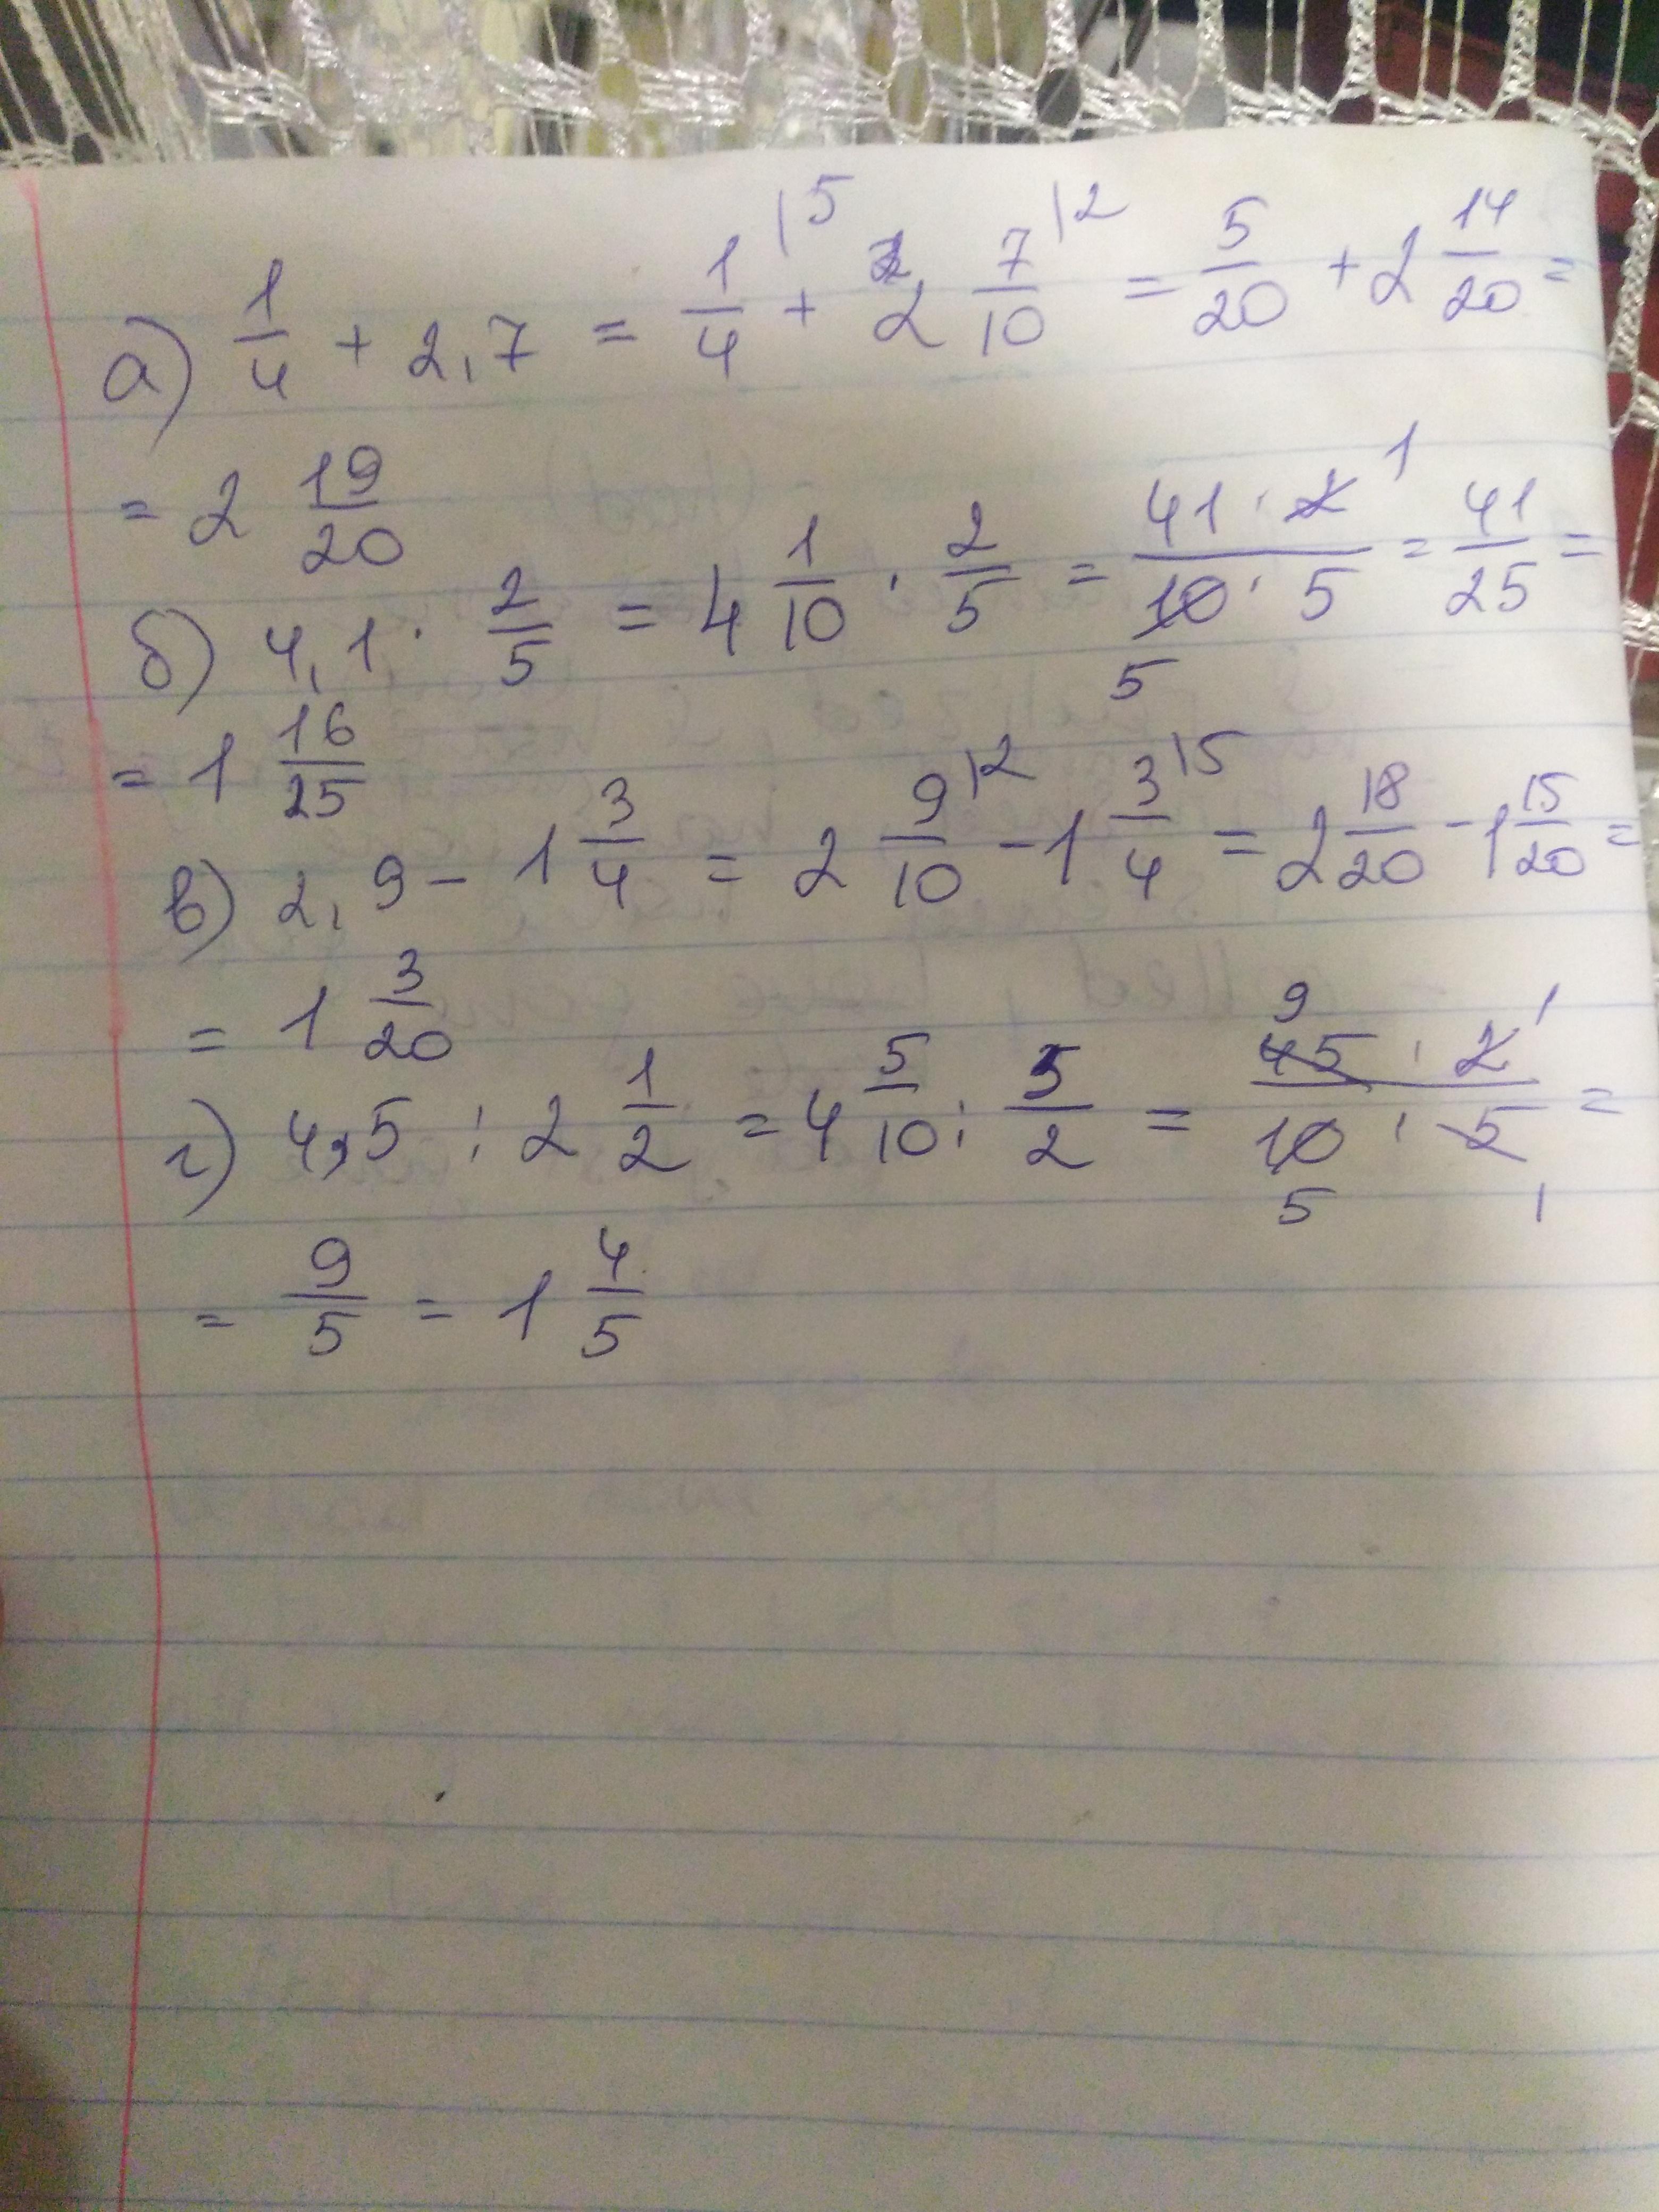 а) 1/4 + 2,7 = 1/4 |5 + 2 7/10 |2 = 5/20 + 2 14/20 =
= 2 19/20
б) 4,1 · 2/5 = 4 1/10 · 2/5 = 41 · 2 1/10 · 5 5 = 41/25 =
= 1 16/25
в) 2,9 - 1 3/4 = 2 9/10 |2 - 1 3/4 |5 = 2 18/20 - 1 15/20 =
= 1 3/20
г) 4,5 : 2 1/2 = 4 5/10 : 5/2 = 9 45 · 2 1/10 · 5 5 1 =
= 9/5 = 1 4/5